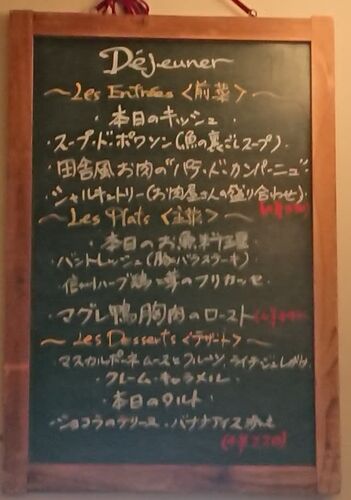 Déjeuner
~Les Entrées <前菜>~
・本日のキッシュ
・スープ・ド・ポワソン(魚の裏ごしスープ)
・田舎風お肉の"パテ・ド・カンパーニュ"
・シャルキュトリー(お肉屋さんの盛り合わせ)
~Les Plats <主菜>~
・本日のお魚料理
・バントレッシュ(豚バラステーキ)
・信州ハーブ鶏と茸のフリカッセ
・マグレ鴨胸肉のロースト
~Les Desserts <デザート>~
マスカルポーネムースとフルーツ、
・クレーム・キャラメル
・本日のタルト
・ショコラのテリーヌ・バナナアイス